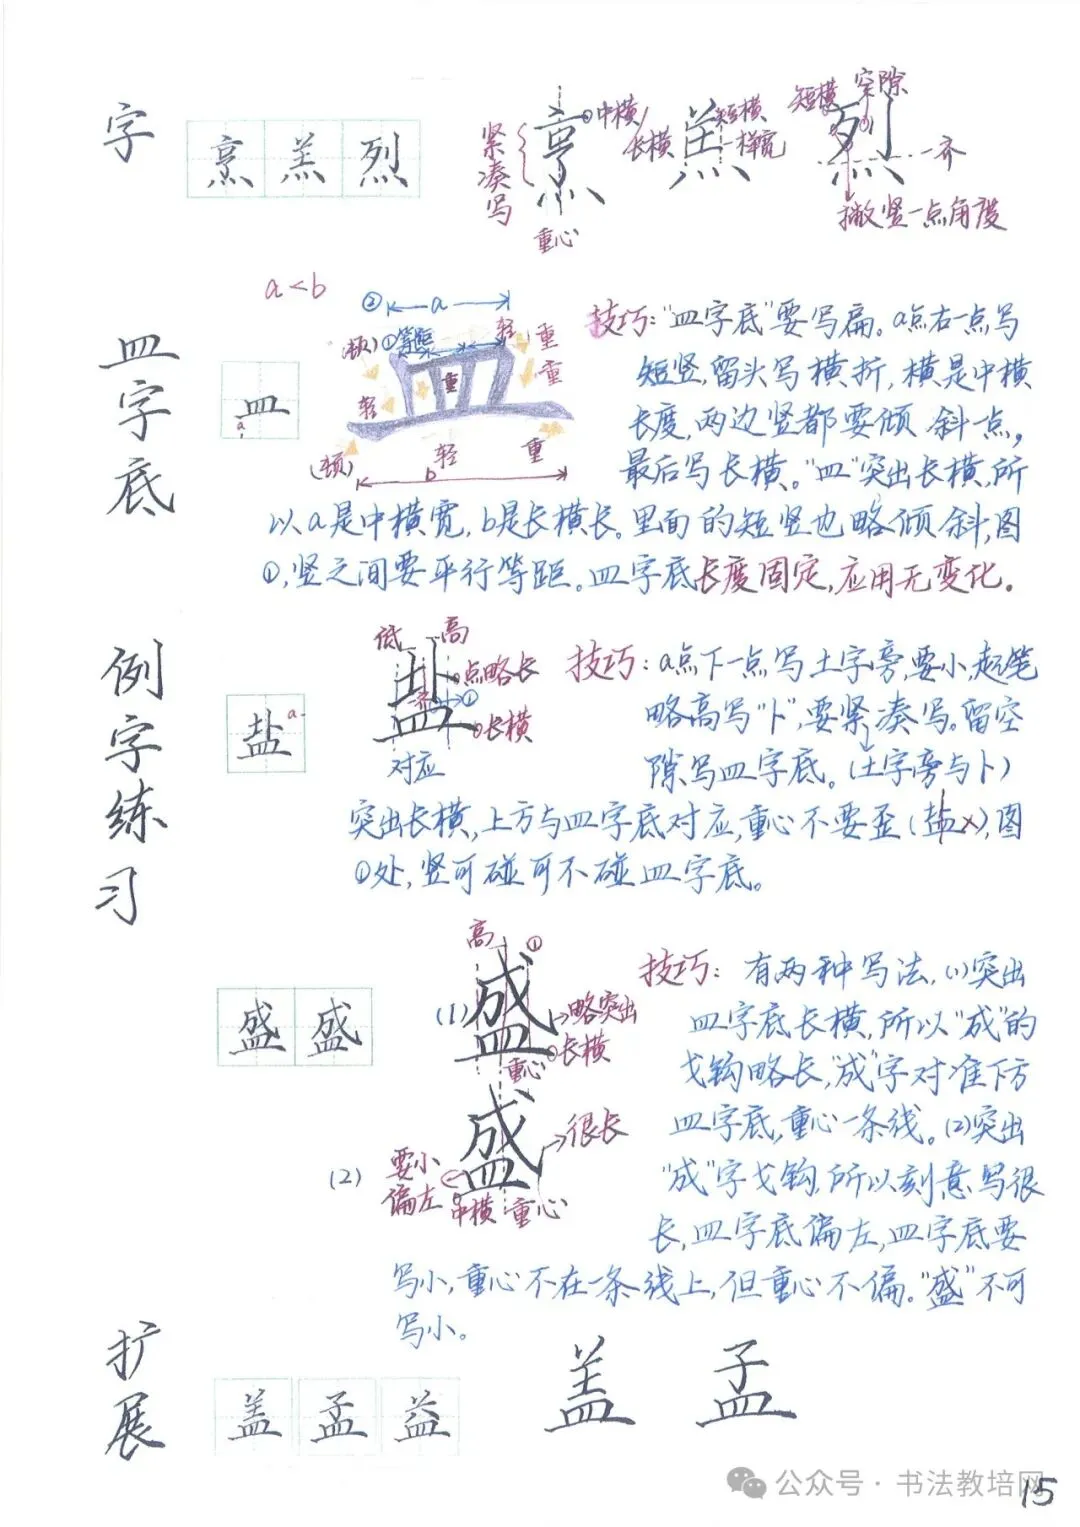 字
烹 羔 烈
紧凑写
中横
重心
长横
短横
一样宽
短横
空隙
一齐
撇竖一点角度
皿字底
皿
a
a<b
② a
(顿) ①等距 轻 重
重 重
轻
(顿) 轻 重
b
技巧:“皿字底”要写扁。a点右一点写
短竖,留头写横折,横是中横
长度,两边竖都要倾斜一点,
最后写长横。“皿”突出长横,所
以a是中横宽,b是长横长。里面的短竖也略倾斜,图
①,竖之间要平行等距。皿字底长度固定,应用无变化。
例字练习
盐
a
低 高
盐
点略长
齐 ①
长横
对应
技巧:a点下一点写土字旁,要小,起笔
略高写“卜”,要紧凑写。留空
隙写皿字底。(土字旁与卜)
突出长横,上方与皿字底对应,重心不要歪(盐×),图
①处,竖可碰可不碰皿字底。
盛 盛
高 ①
(1) 盛
略突出
长横
重心
(2) 盛
很长
要小
偏左
中横 重心
技巧: 有两种写法,(1)突出
皿字底长横,所以“成”的
戈钩略长,“成”字对准下方
皿字底,重心一条线。(2)突出
“成”字戈钩,所以刻意写很
长,皿字底偏左,皿字底要
写小,重心不在一条线上,但重心不偏。“盛”不可
写小。
扩展
盖 孟 益
盖 孟
公众号·书法教培网
15